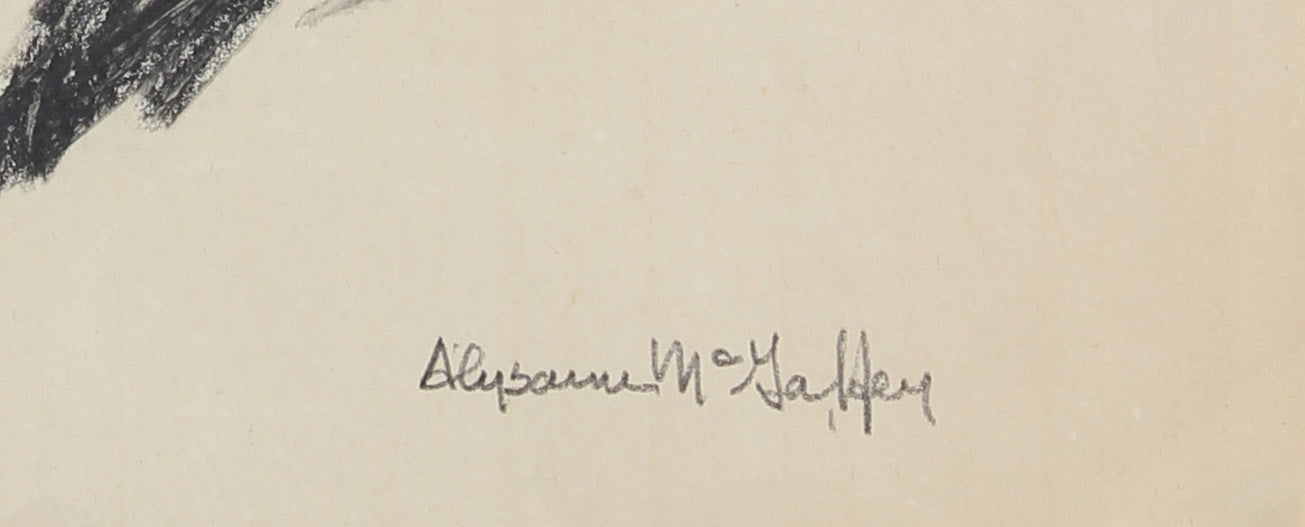 Alysanne McGaffey